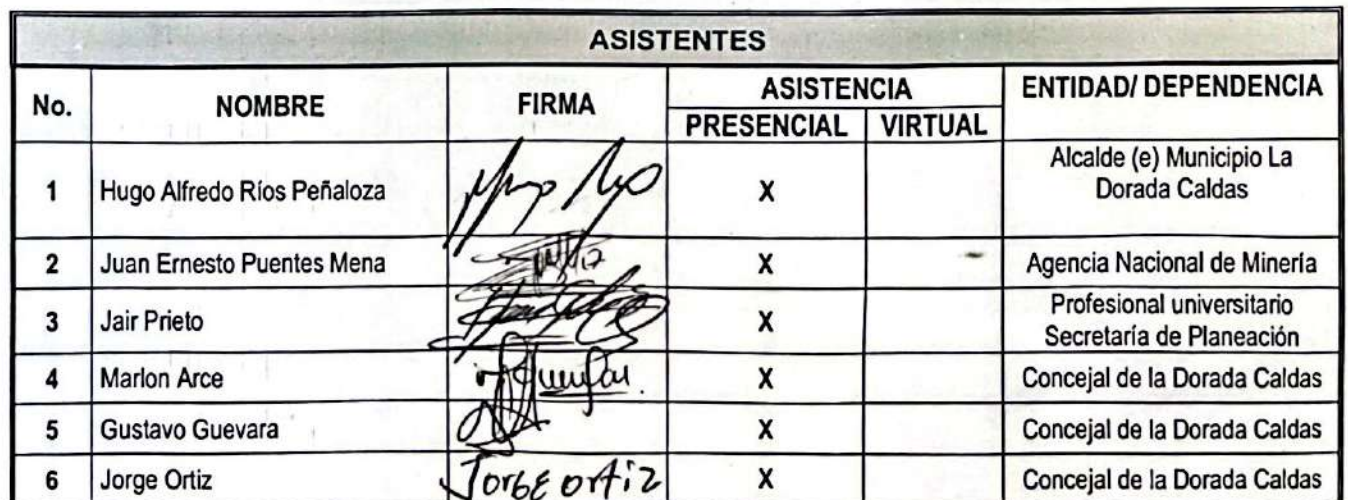 ASISTENTES
No. NOMBRE FIRMA ASISTENCIA ENTIDAD/ DEPENDENCIA
PRESENCIAL VIRTUAL
1 Hugo Alfredo Ríos Peñaloza X Alcalde (e) Municipio La
Dorada Caldas
2 Juan Ernesto Puentes Mena X Agencia Nacional de Minería
3 Jair Prieto X Profesional universitario
Secretaría de Planeación
4 Marlon Arce X Concejal de la Dorada Caldas
5 Gustavo Guevara X Concejal de la Dorada Caldas
6 Jorge Ortiz Jorge ortiz X Concejal de la Dorada Caldas